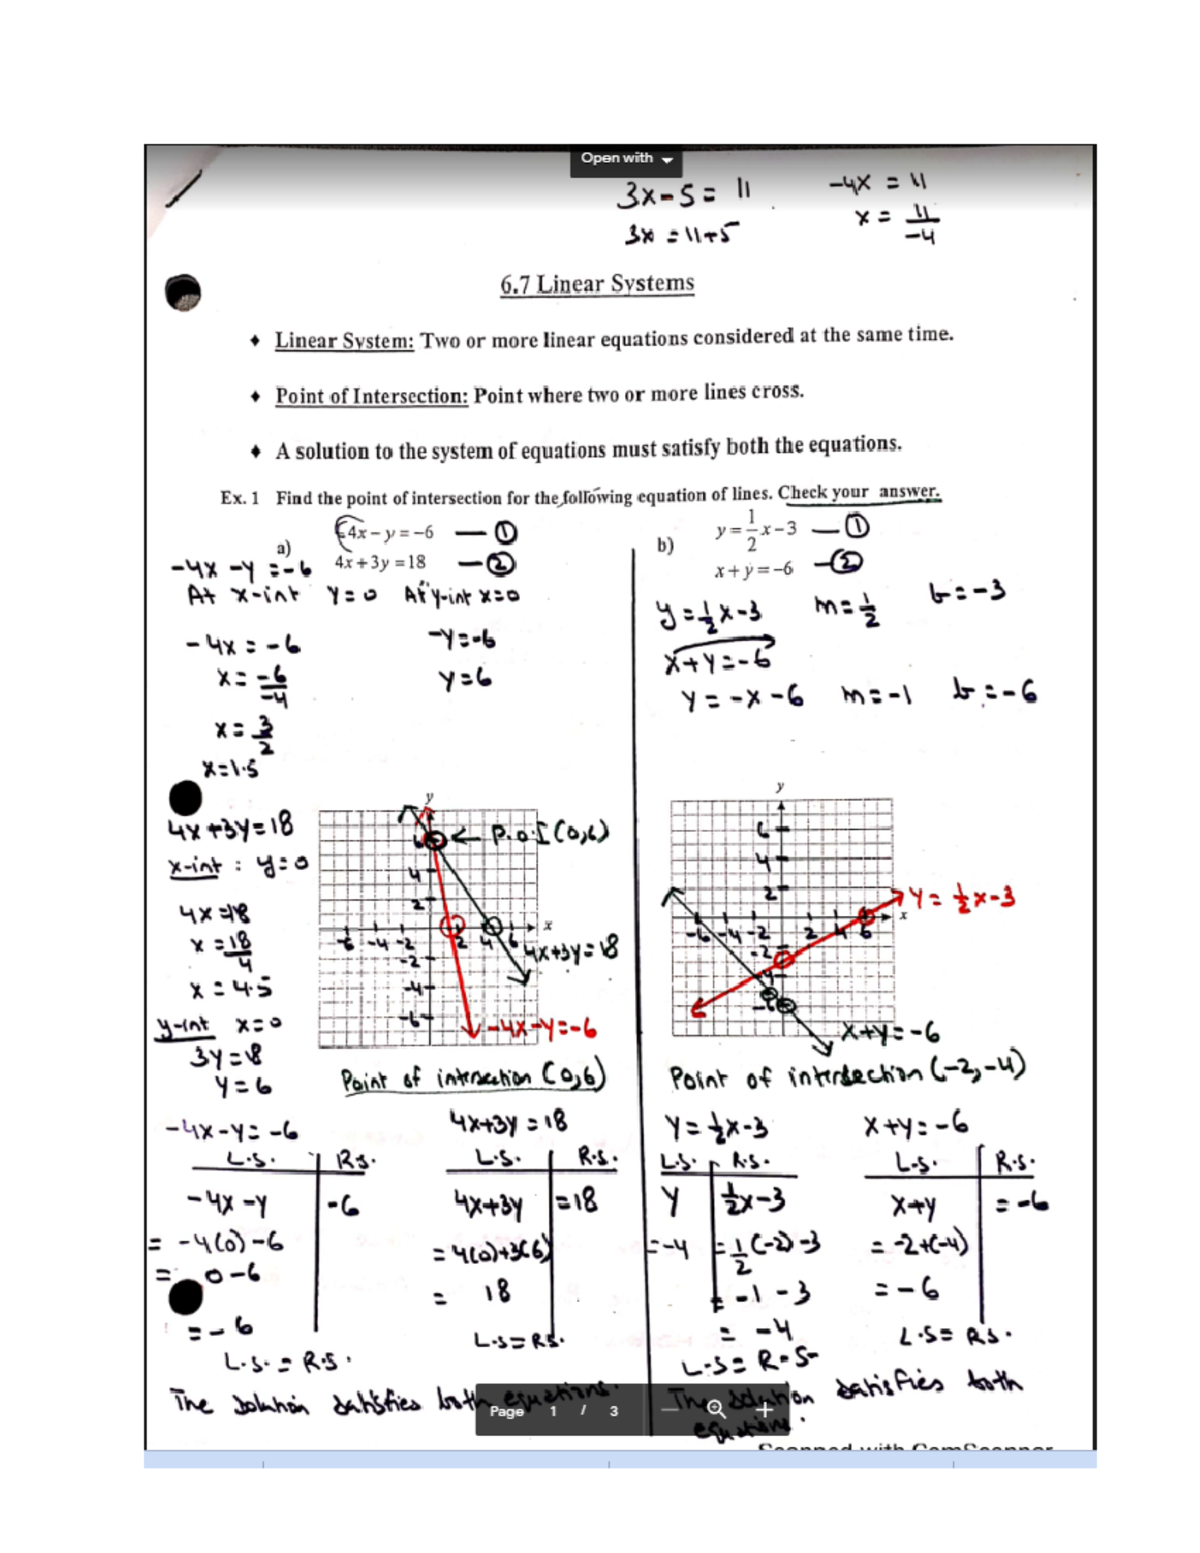 Open with
3x-5 = 11
3x = 11+5
-4x = 11
x = 11/-4
6.7 Linear Systems
♦ Linear System: Two or more linear equations considered at the same time.
♦ Point of Intersection: Point where two or more lines cross.
♦ A solution to the system of equations must satisfy both the equations.
Ex. 1 Find the point of intersection for the following equation of lines. Check your answer.
a)
-4x - y = -6 — ①
4x + 3y = 18 — ②
-4x -y = -6
At x-int y=0 At y-int x=0
-4x = -6
x = -6/-4
x = 3/2
x=1.5
-y=-6
y=6
4x+3y=18
x-int : y=0
4x=18
x = 18/4
x = 4.5
y-int x=0
3y=18
y=6
y
6
4
2
-6 -4 -2
2 4 6
x
-2
-4
-6
← P.O.I (0,6)
4x+3y=18
-4x-y=-6
Point of intersection (0,6)
-4x-y= -6
L.S. R.S.
-4x -y -6
= -4(0)-6
= 0-6
= -6
L.S. = R.S.
4x+3y = 18
L.S. R.S.
4x+3y =18
= 4(0)+3(6)
= 18
L.S=R.S.
The solution satisfies both equations.
b)
y = 1/2 x - 3 — ①
x + y = -6 — ②
y = 1/2 x-3 m= 1/2 b=-3
x+y=-6
y = -x -6 m=-1 b=-6
y
6
4
2
-6 -4 -2
2 4 6
x
-2
-4
-6
y = 1/2 x-3
x+y=-6
Point of intersection (-2,-4)
y = 1/2 x-3
L.S. R.S.
y 1/2 x-3
=-4 = 1/2 (-2)-3
= -1 -3
= -4
L.S= R.S
x+y=-6
L.S. R.S.
x+y = -6
= -2+(-4)
= -6
L.S= R.S.
The solution satisfies both
equations.
Page 1 / 3
Scanned with CamScanner